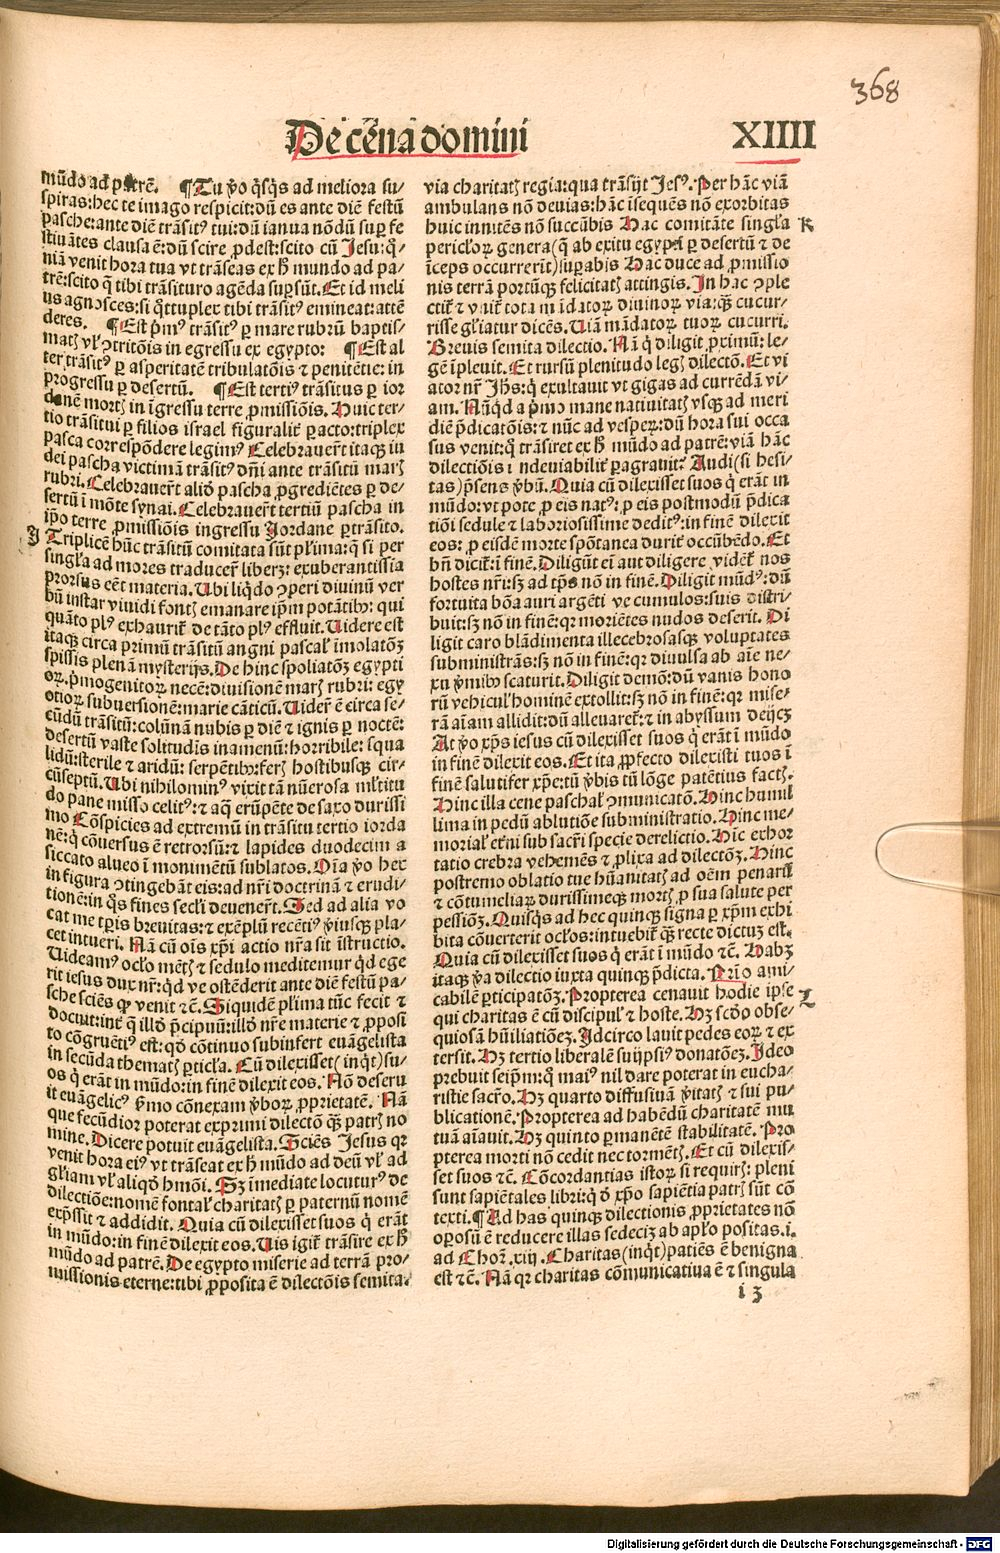 368
De cẽna domini XIIII
mũdo ad patrẽ. ¶Tu ṽo q̃sq̃s ad meliora su⸗
spiras: hec te imago respicit: dũ es ante diẽ festũ
pasche: ante diẽ trãsitꝰ tui: dũ ianua nõdũ suꝑ fe
stiuãtes clausa ẽ: dũ scire ꝓdest: scito cũ Jesu: q̃⸗
niã venit hora tua vt trãseas ex h̃ mundo ad pa⸗
trẽ: scito q̃ tibi trãsituro agẽda suꝑsũt. Et id meli
us agnosces: si q̃ttuplex tibi trãsitꝰ emineat: attẽ
deres. ¶Est p̃mꝰ trãsitꝰ ꝑ mare rubrũ baptis⸗
matꝭ vl̃ ꝯtritõis in egressu ex egypto: ¶Est al
ter trãsitꝰ ꝑ asperitatẽ tribulatõis ⁊ penitẽtie: in
progressu ꝑ desertũ. ¶Est tertiꝰ trãsitus ꝑ ior
danẽ mortꝭ in ĩgressu terre ꝓmissiõis. Huic ter⸗
tio trãsitui ꝑ filios israel figuralit̃ ꝑacto: triplex
pasca correspõdere legimꝰ Celebrauer̃t itaqꝫ iu
dei pascha victimã trãsitꝰ dñi ante trãsitũ marꝭ
rubri. Celebrauer̃t aliḋ pascha ꝓgrediẽtes ꝑ de⸗
sertũ ĩ mõte synai. Celebrauer̃t tertiũ pascha in
ip̃o terre ꝓmissiõis ingressu Jordane ꝑtrãsito.
J Triplicẽ hũc trãsitũ comitata sũt pl̃ima: q̃ si per
singl̃a ad mores traducer̃ liberꝫ: exuberantissia
prorsus eẽt materia. Ubi liq̃do ꝯperi diuinũ ver
bũ instar viuidi fontꝭ emanare ip̃m potãtibꝰ: qui
quãto plꝰ exhaurit̃ de tãto plꝰ effluit. Uidere est
itaqꝫ circa primũ trãsitũ angni pascal̃ imolatõꝫ
spissis plenã mysterijs. De hinc spoliatõꝫ egypti
oꝝ. p̃mogenitoꝝ necẽ: diuisionẽ marꝭ rubri: egy
otioꝝ subuersionẽ: marie cãticũ. Uider̃ ẽ circa se⸗
cũdũ trãsitũ: colũnã nubis ꝑ diẽ ⁊ ignis ꝑ noctẽ:
desertũ vaste solitudĩs inamenũ: horribile: squa
lidũ: sterile ⁊ aridũ: serpẽtibꝰ: ferꝭ hostibusqꝫ cir⸗
cũseptũ. Ubi nihilominꝰ vixit tã nũerosa ml̃titu
do pane misso celitꝰ: ⁊ aq̃ erũpẽte de saxo durissi
mo Cõspicies ad extremũ in trãsitu tertio iorda
nẽ: q̃ cõuersus ẽ retrorsũ: ⁊ lapides duodecim a
siccato alueo ĩ monimẽtũ sublatos. Oĩa ṽo hec
in figura ꝯtingebãt eis: ad nr̃i doctrinã ⁊ erudi⸗
tionẽ: in q̃s fines secl̃i deuener̃t. Sed ad alia vo
cat me tꝑis breuitas: ⁊ exẽplũ recẽtiꝰ ṽiusqꝫ pla⸗
cet intueri. Nã cũ oĩs xp̃i actio nr̃a sit ĩstructio.
Uideamꝰ ocl̃o mẽtꝭ ⁊ sedulo meditemur q̃d ege
rit iesus dux nr̃: q̃d ve ostẽderit ante diẽ festũ pa⸗
sche sciẽs qꝫ venit ⁊c̃. Siquidẽ pl̃ima tũc fecit ⁊
docuit: int̃ q̃ illḋ p̃cipuũ: illḋ nr̃e materie ⁊ ꝓposi
to cõgruẽtiꝰ est: qḋ cõtinuo subinfert euãgelista
in secũda thematꝭ ꝑticl̃a. Cũ dilexisset (inq̃t) su⸗
os q̃ erãt in mũdo: in finẽ dilexit eos. Nõ deseru
it euãgelicꝰ ẽmo cõnexam ṽboꝝ ꝓprietatẽ. Nã
que fecũdior poterat exprimi dilectõ qꝫ patrꝭ no
mine. Dicere potuit euãgelista. Sciẽs Jesus qr
venit hora eiꝰ vt trãseat ex h̃ mũdo ad deũ vl̃ ad
gl̃iam vl̃ aliqḋ hmõi. Sꝫ ĩmediate locuturꝰ de
dilectiõe: nomẽ fontal̃ charitatꝭ ꝑ paternũ nomẽ
exp̃ssit ⁊ addidit. Quia cũ dilexisset suos q̃ erãt
in mũdo: in finẽ dilexit eos. Uis igit̃ trãsire ex h̃
mũdo ad patrẽ. De egypto miserie ad terrã pro⸗
missionis eterne: tibi ꝓposita ẽ dilectõis semita:
via charitatꝭ regia: qua trãsijt Jesꝰ. Per hãc viã
ambulans nõ deuias: hãc ĩsequẽs nõ exorbitas
huic innitẽs nõ succũbis Hac comitãte singl̃a K
pericl̃oꝝ genera (q̃ ab exitu egypti ꝑ desertũ ⁊ de
ĩceps occurrerĩt) suꝑabis Hac duce ad ꝓmissio
nis terrã portũqꝫ felicitatꝭ attingis. In hac ꝯple
ctit̃ ⁊ vnit̃ tota mãdatoꝝ diuinoꝝ via: qꝫ cucur⸗
risse gl̃iatur dicẽs. Uiã mãdatoꝝ tuoꝝ cucurri.
Breuis semita dilectio. Nã q̃ diligit ꝓximũ: le⸗
gẽ ĩpleuit. Et rursũ plenitudo legꝭ dilectõ. Et vi
ator nr̃ Jhs̃: q̃ exultauit vt gigas ad currẽdã vi⸗
am. Nãq̃d a p̃mo mane natiuitatꝭ vsqꝫ ad meri
diẽ p̃dicatõis: ⁊ nũc ad vesperꝫ: dũ hora sui occa
sus venit: q̃ trãsiret ex h̃ mũdo ad patrẽ: viã hãc
dilectiõis indeuiabilit̃ ꝑagrauit? Audi (si hesi⸗
tas) p̃sens ṽbũ. Quia cũ dilexisset suos q̃ erãt in
mũdo: vt pote ꝓ eis natꝰ: ꝓ eis postmodũ p̃dica
tiõi sedule ⁊ laboriosissime deditꝰ: in finẽ dilexit
eos: ꝓ eisdẽ morte spõtanea durit̃ occũbẽdo. Et
bñ dicit̃: ĩ finẽ. Diligũt eĩ aut diligere vident̃ nos
hostes nr̃i: sꝫ ad tp̃s nõ in finẽ. Diligit mũdꝰ: dũ
fortuita bõa auri argẽti ve cumulos: suis distri⸗
buit: sꝫ nõ in finẽ: qr moriẽtes nudos deserit. Di
ligit caro blãdimenta illecebrosasqꝫ voluptates
subministrãs: sꝫ nõ in finẽ: qr diuulsa ab aĩe ne⸗
xu ṽmibꝰ scaturit. Diligit demõ: dũ vanis hono
rũ vehicul̃ hominẽ extollit: sꝫ nõ in finẽ: qr mise⸗
rã aĩam allidit: dũ alleuaret̃: ⁊ in abyssum deijcꝫ
At ṽo xp̃s iesus cũ dilexisset suos q̃ erãt ĩ mũdo
in finẽ dilexit eos. Et ita ꝓfecto dilexisti tuos ĩ
finẽ salutifer xp̃e: tũ ṽbis tũ lõge patẽtius factꝭ.
Hinc illa cene paschal̃ ꝯmunicatõ. Hinc humil
lima in pedũ ablutiõe subministratio. Hinc me⸗
morial̃ et̃ni sub sacr̃i specie derelictio. Hic exhor
tatio crebra vehemẽs ⁊ ꝓlixa ad dilectõꝫ. Hinc
postremo oblatio tue hũanitatꝭ ad oẽm penarũ
⁊ cõtumeliaꝝ durissimeqꝫ mortꝭ ꝓ sua salute per
pessiõꝫ. Quisq̃s ad hec quinqꝫ signa ꝑ xp̃m exhi
bita cõuerterit ocl̃os: intuebit̃ qꝫ recte dictuꝫ est.
Quia cũ dilexisset suos q̃ erãt ĩ mũdo ⁊c̃. Habꝫ
itaqꝫ ṽa dilectio iuxta quinqꝫ p̃dicta. Prĩo ami⸗
cabilẽ ꝑticipatõꝫ. Propterea cenauit hodie ipse L
qui charitas ẽ cũ discipul̃ ⁊ hoste. Hꝫ scḋo obse⸗
quiosã hũiliatiõeꝫ. Idcirco lauit pedes eoꝝ ⁊ ex
tersit. Hꝫ tertio liberalẽ suijpsiꝰ donatõeꝫ. Ideo
prebuit seip̃m: q̃ maiꝰ nil dare poterat in eucha⸗
ristie sacr̃o. Hꝫ quarto diffusiuã ṽitatꝭ ⁊ sui pu⸗
blicationẽ. Propterea ad habẽdũ charitatẽ mu
tuã aĩauit. Hꝫ quinto ꝑmanẽtẽ stabilitatẽ. Pro
pterea morti nõ cedit nec tormẽtꝭ. Et cũ dilexis⸗
set suos ⁊c̃. Cõcordantias istoꝝ si requirꝭ: pleni
sunt sapiẽtales libri: q̃ ḋ xp̃o sapiẽtia patrꝭ sũt cõ
texti. ¶Ad has quinqꝫ dilectionis ꝓprietates nõ
oꝑosũ ẽ reducere illas sedecĩꝫ ab ap̃lo positas .i.
ad Choꝝ .xiij. Charitas (inq̃t) patiẽs ẽ benigna
est ⁊c̃. Nã qr charitas cõmunicatiua ẽ ⁊ singula
i 3
Digitalisierung gefördert durch die Deutsche Forschungsgemeinschaft - DFG